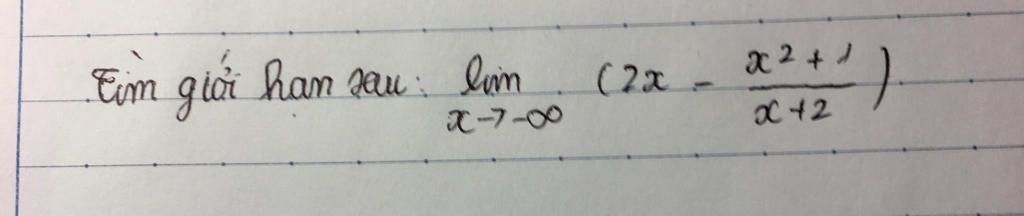 Tìm giới hạn sau: lim x→-∞ (2x - (x²+1)/(x+2))